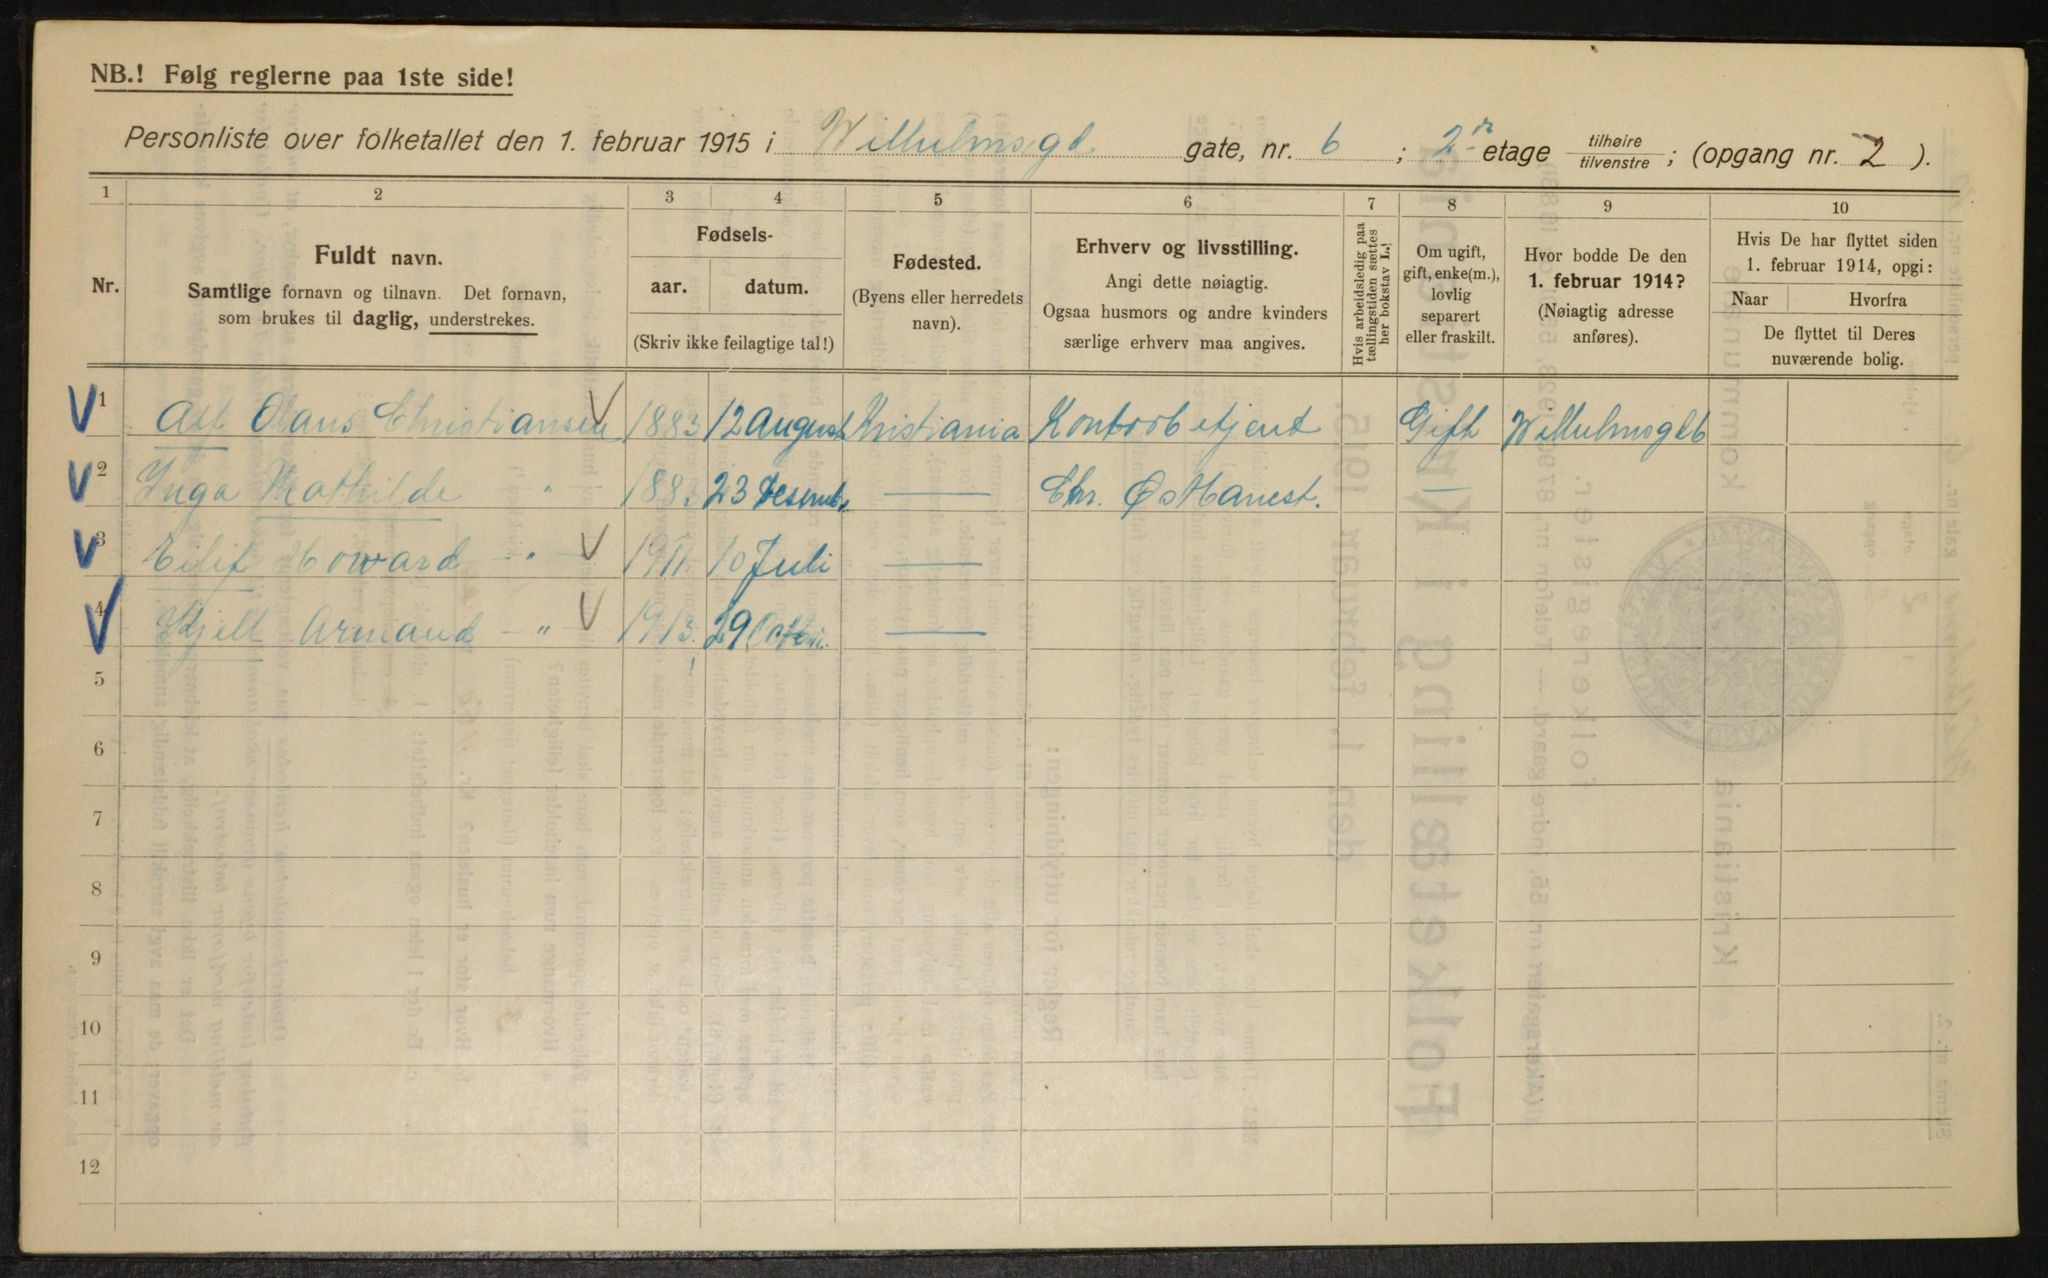 NB.! Følg reglerne paa 1ste side!
Personliste over folketallet den 1. februar 1915 i Wilhelmsgd gate, nr. 6 ; 2 etage tilhøire / tilvenstre ; (opgang nr. 2 ).
1 2 3 4 5 6 7 8 9 10
Nr.
Fuldt navn.
Samtlige fornavn og tilnavn. Det fornavn,
som brukes til daglig, understrekes.
Fødsels-
aar. datum.
(Skriv ikke feilagtige tal!)
Fødested.
(Byens eller herredets
navn).
Erhverv og livsstilling.
Angi dette nøiagtig.
Ogsaa husmors og andre kvinders
særlige erhverv maa angives.
Hvis arbeidsledig paa
tællingstiden sættes
her bokstav L.!
Om ugift,
gift, enke(m.),
lovlig
separert
eller fraskilt.
Hvor bodde De den
1. februar 1914?
(Nøiagtig adresse
anføres).
Hvis De har flyttet siden
1. februar 1914, opgi:
Naar Hvorfra
De flyttet til Deres
nuværende bolig.
1 Alf Olaus Christiansen 1883 12 August Kristiania Kontorbetjent Gift Wilhelmsgt 6
2 Inga Mathilde — " — 1883 23 Desemb. — Chr. —
3 Eilif Howard — " — 1911 10 Juli —
4 Kjell Armand — " — 1913 29 Octbr. —
5
6
7
8
9
10
11
12